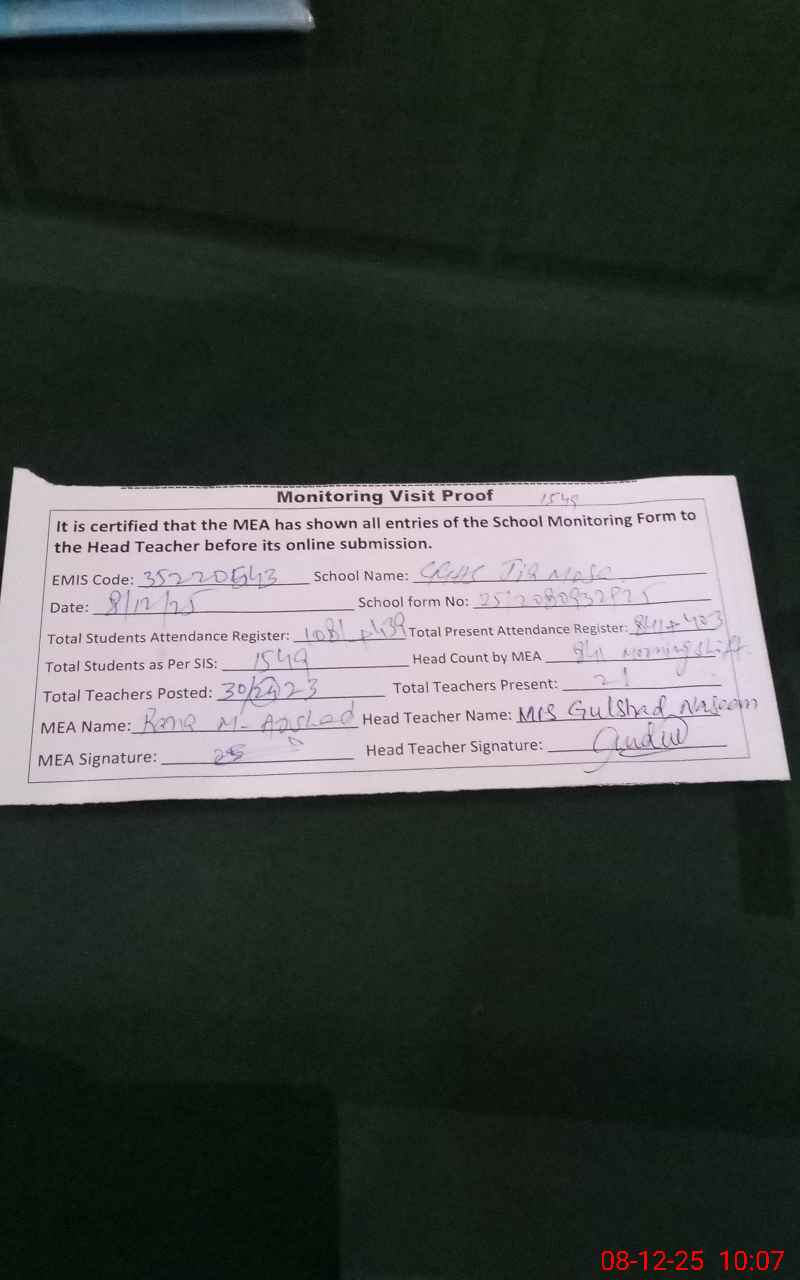 Monitoring Visit Proof 1549
It is certified that the MEA has shown all entries of the School Monitoring Form to
the Head Teacher before its online submission.
EMIS Code: 35220543 School Name:
Date: 8/12/25 School form No:
Total Students Attendance Register: 1081 + 439 Total Present Attendance Register: 841 + 403
Total Students as Per SIS: 1549 Head Count by MEA 841 Morning shift
Total Teachers Posted: 30/ 23 Total Teachers Present: 21
MEA Name: Rana M. Arshad Head Teacher Name: Mrs Gulshad Naseem
MEA Signature: Head Teacher Signature:
08-12-25 10:07